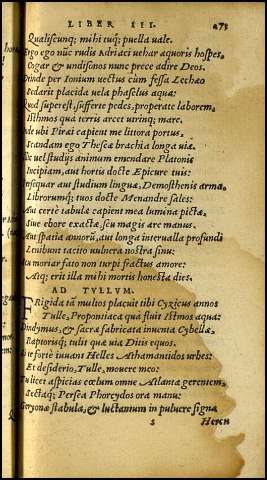 LIBER III. 273
Qualiscunq; mihi tuq; puella vale.
Ergo ego nũc rudis Adriaci vehar æquoris hospes,
Cogar & undisonos nunc prece adire Deos.
Deinde per Ionium vectus cùm fessa Lechæo
Sedarit placida vela phaselus aqua:
Quod superest, sufferre pedes, properate laborem,
Isthmos qua terris arcet utrinq; mare.
Inde ubi Piræi capient me littora portus,
Scandam ego Theseæ brachia longa viæ.
vel studijs animum emendare Platonis
Incipiam, aut hortis docte Epicure tuis:
Persequar aut studium linguæ, Demosthenis arma,
Librorumq; tuos docte Menandre sales:
Aut certè tabulæ capient mea lumina pictæ,
Siue ebore exactæ, seu magis ære manus.
Aut spatia annorũ, aut longa interualla profundi
Lenibunt tacito vulnera nostra sinu:
moriar fato non turpi fractus amore:
Atq; erit illa mihi mortis honesta dies.
AD TVLLVM.
FRigida tã multos placuit tibi Cyzicus annos
Tulle, Propontiaca quà fluit Istmos aqua:
Dindymus, & sacra fabricata inuenta Cybellæ,
Raptorisq; tulit quæ via Ditis equos.
forte iuuant Helles Athamantidos urbes:
Et desiderio, Tulle, mouere meo:
licet aspicias cœlum omne Atlanta gerentem,
Sectaq; Persea Phorcydos ora manu:
Geryonæ stabula, & luctantum in puluere signa
s Hercu